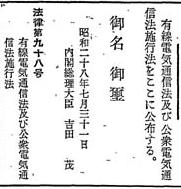 有線電気通信法及び公衆電気通
信法施行法をここに公布する。
御名 御璽
昭和二十八年七月三十一日
内閣総理大臣 吉田 茂
法律第九十八号
有線電気通信法及び公衆電気通
信法施行法